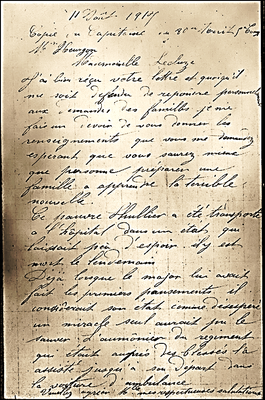 11 Août 1915
Mr Hourgon
Mademoiselle Lecluze
J'ai bien reçu votre lettre et quoiqu'il
me soit défendu de repondre personnel
aux demandes des familles je me
fais un devoir de vous donner les
renseignements que vous me demandez
esperant que vous saurez mieux
que personne préparer une
famille a apprendre la terrible
nouvelle
Ce pauvre Lhuillier a été transporté
a l'hôpital dans un état qui
laissait peu d'espoir il y est
mort le lendemain
Déjà lorsque le major lui avait
fait les premiers pansements il
considérait son état comme désespéré
un miracle seul aurait pu le
sauver L'aumonier du regiment
qui était auprès des blessés l'a
assisté jusqu'à son départ dans
la voiture d'ambulance
Veuillez agréer mes respectueuses salutations